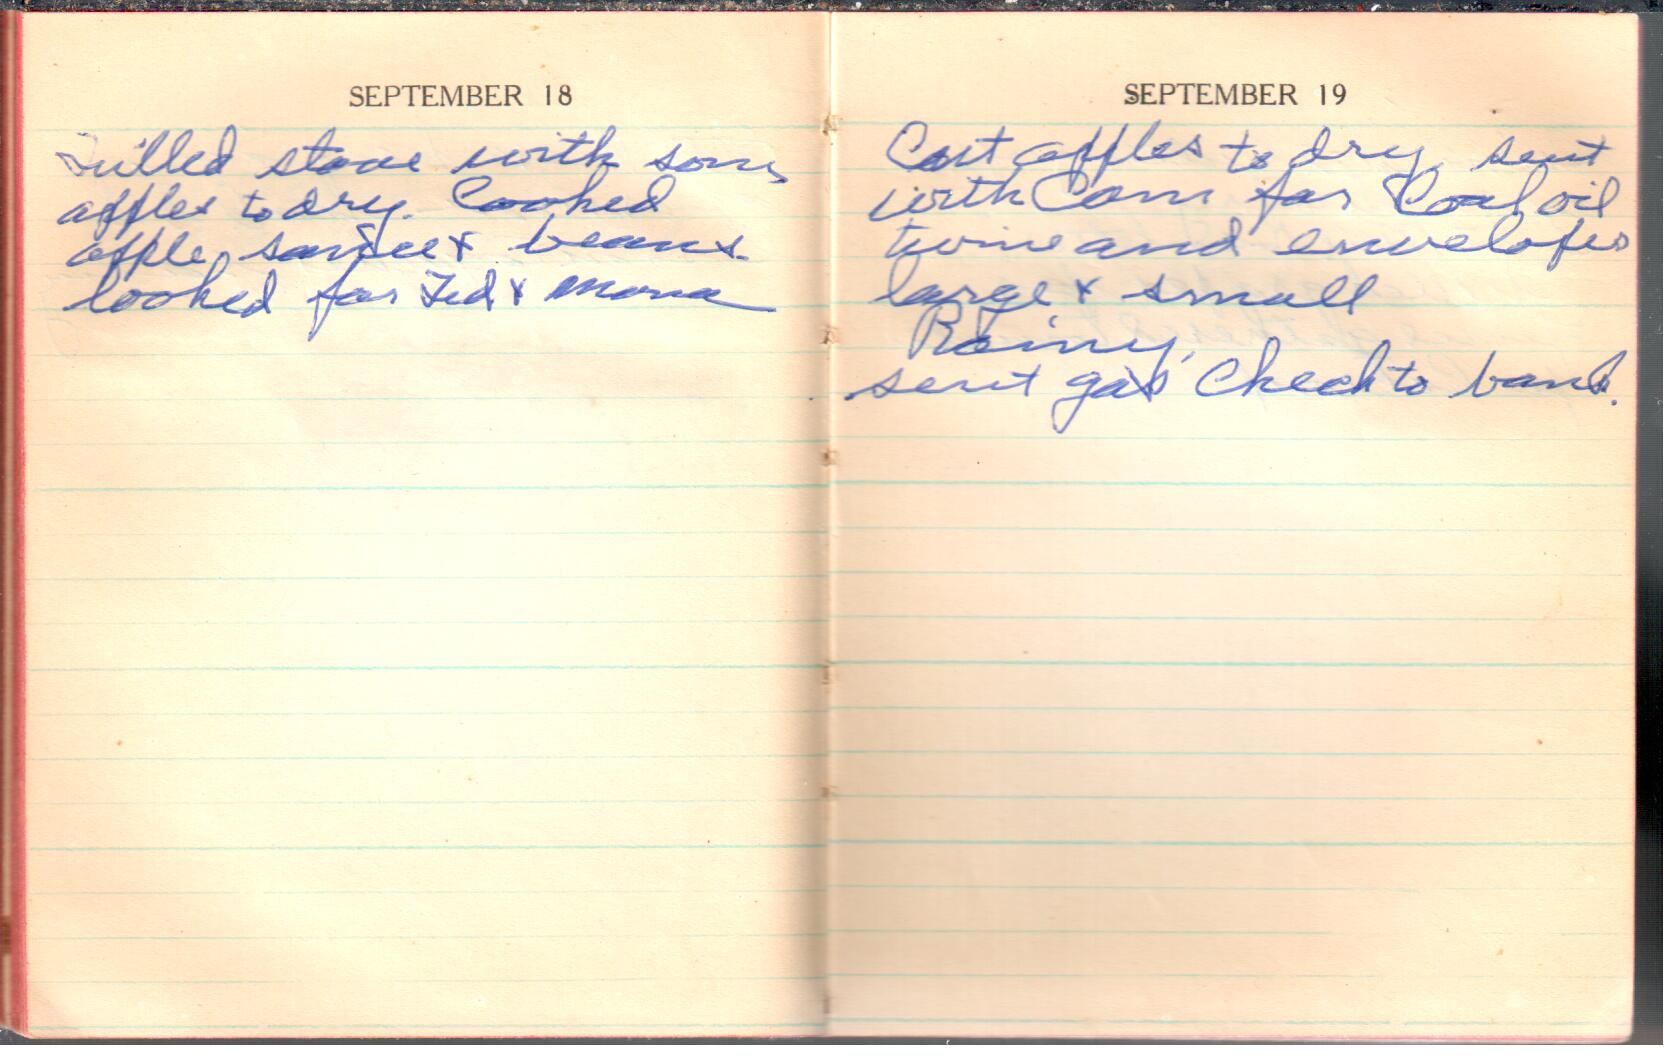 SEPTEMBER 18
Filled stove with some
apples to dry. Cooked
apple sauce & beans.
looked for Ted & Mona
SEPTEMBER 19
Cut apples to dry, sent
with Cam for Coal oil
twine and envelopes
large & small
Rainy,
sent gas Check to bank.